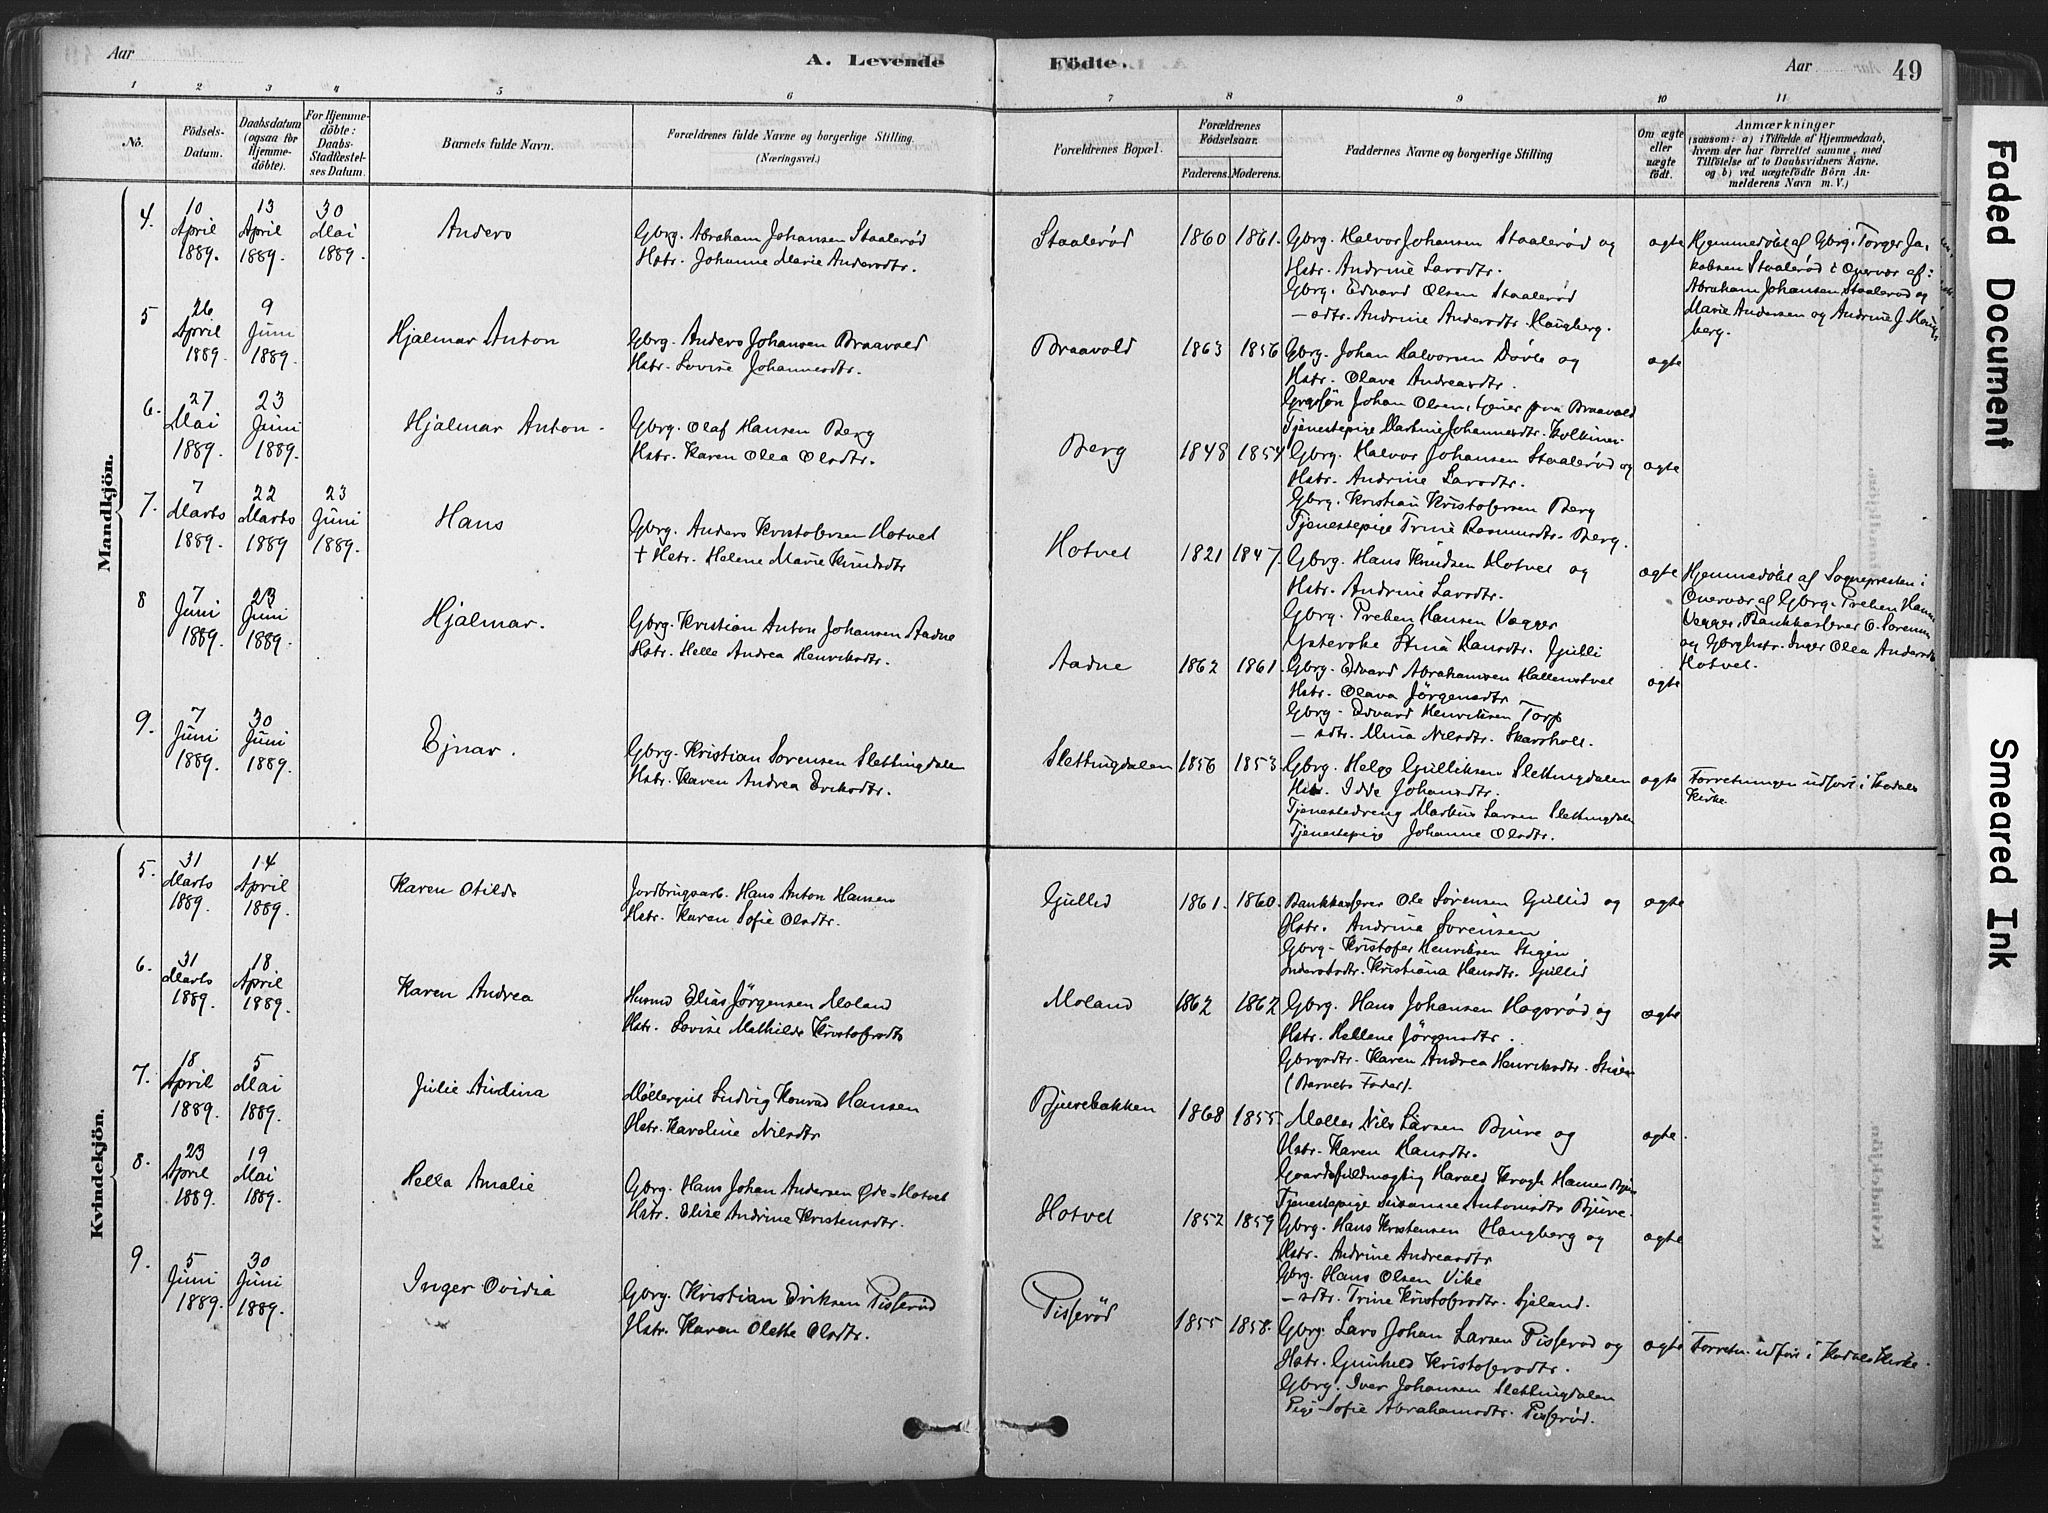 Aar
A. Levende
Födte.
Aar
49
1 2 3 4 5 6 7 8 9 10 11
No.
Födsels-Datum.
Daabsdatum (ogsaa for Hjemme-döbte).
For Hjemme-döbte: Daabs-Stadfæstel-ses Datum.
Barnets fulde Navn.
Forældrenes fulde Navne og borgerlige Stilling.
(Næringsvei.)
Forældrenes Bopæl.
Forældrenes Födselsaar.
Faderens. Moderens.
Faddernes Navne og borgerlige Stilling
Om ægte eller uægte födt.
Anmærkninger
(saasom: a) i Tilfælde af Hjemmedaab,
hvem der har forrettet samme, med
Tilföielse af to Daabsvidners Navne.
og b) ved uægtefödte Börn An-
melderens Navn m. V.)
Mandkjön.
4.
10 April 1889.
13 April 1889.
30 Mai 1889.
Anders
Gbrg. Abraham Johansen Staalerød
Hstr. Johanne Marie Andersdtr.
Staalerød
1860 1861.
Gbrg. Halvor Johansen Staalerød og
Hstr. Andrine Larsdtr.
Gbrg. Edvard Olsen Staalerød
— sdtr. Andrine Andersdtr. Haugberg.
ægte
Hjemmedøbt af Gbrg. Torger Ja-
kobsen Staalerød i Overvær af:
Abraham Johansen Staalerød og
Marie Andersen og Andrine J. Haug-
berg.
5
26 April 1889.
9 Juni 1889.
Hjalmar Anton
Gbrg. Anders Johansen Braavold
Hstr. Lovise Johannesdtr.
Braavold
1863 1856
Gbrg. Johan Halvorsen Døvle og
Hstr. Olava Andreasdtr.
Grgsøn Johan Olsen, tjener paa Braavold
Tjenestepige Martine Johannesdtr.
ægte
6.
27 Mai 1889.
23 Juni 1889.
Hjalmar Anton
Gbrg. Olaf Hansen Berg
Hstr. Karen Olea Olsdtr.
Berg
1848 1854
Gbrg. Halvor Johansen Staalerød og
Hstr. Andrine Larsdtr.
Gbrg. Kristian Kristofersen Berg
Tjenestepige Trine Rasmusdtr. Berg.
ægte
7.
7 Marts 1889.
22 Marts 1889
23 Juni 1889.
Hans
Gbrg. Anders Kristofersen Hotvet
+ Hstr. Helene Marie Knudsdtr
Hotvet
1821 1847.
Gbrg. Hans Knudsen Hotvet og
Hstr. Andrine Larsdtr.
Gbrg. Preben Hansen Vegger
Stina Hansdtr. Gjulli
ægte
Hjemmedøbt af Sognepresten i
Overvær af Gbrg. Preben Hansen
Vegger, Bankkasserer O. Sørensen
og Gbrghstr. Inger Olea Andersdtr
Hotvet.
8
7 Juni 1889.
23 Juni 1889.
Hjalmar.
Gbrg. Kristian Anton Johansen Aadne
Hstr. Helle Andrea Henriksdtr.
Aadne
1862 1861.
Gbrg. Edvard Abrahamsen Hallenstvet
Hstr. Olava Jørgensdtr
Gbrg. Edvard Henriksen Torp
— sdtr. Mina Nilsdtr. Skarsholt.
ægte
9.
7 Juni 1889.
30 Juni 1889.
Ejnar.
Gbrg. Kristian Sørensen Slettingdalen
Hstr. Karen Andrea Eriksdtr.
Slettingdalen
1856 1853.
Gbrg. Helge Gulliksen Slettingdalen
Hstr. Idde Johansdtr.
Tjenestedreng Markus Larsen Slettingdalen
Tjenestepige Johanne Olsdtr.
ægte
Forretningen udført i Kodals
Kirke
Kvindekjön.
5.
31 Marts 1889.
14 April 1889.
Karen Otilde
Jordbrugsarb. Hans Anton Hansen
Hstr. Karen Sofie Olsdtr.
Gjullid
1861. 1860.
Bankkasserer Ole Sørensen Gjullid og
Hstr. Andrina Sørensen
Gbrg. Kristofer Henriksen Stigen
Kristiana Hansdtr. Gjullid
ægte
6.
31 Marts 1889.
18 April 1889.
Karen Andrea
Husmd Elias Jørgensen Moland
Hstr. Lovise Mathilde Kristofersdtr
Moland
1862 1862
Gbrg. Hans Johansen Hagerød og
Hstr. Hellene Jørgensdtr.
Gbrgsdtr. Karen Andrea Henriksdtr. Stigen
(Barnets Fader).
ægte
7.
18 April 1889.
5 Mai 1889.
Julie Andina
Møllergut Ludvig Konrad Hansen
Hstr. Karoline Nilsdtr
Bjurebakken
1868 1855.
Møller Nils Larsen Bjure og
Hstr. Karen Hansdtr.
Gaardsfuldmægtig Harald Krogh Hansen Bjure
Tjenestepige Susanne Antonsdtr Bjure.
ægte.
8.
23 April 1889.
19 Mai 1889.
Hella Amalie
Gbrg. Hans Johan Andersen Øde-Hotvet
Hstr. Elise Andrine Kristensdtr.
Hotvet
1852 1859
Gbrg. Hans Kristensen Haugberg og
Hstr. Andrine Andreasdtr
Gbrg. Hans Olsen Vike
— sdtr. Trine Kristofersdtr. Sjeland.
ægte
9.
5 Juni 1889.
30 Juni 1889.
Inger Ovidia
Gbrg. Kristian Eriksen Pisserød
Hstr. Karen Olette Olsdtr.
Pisserød
1855 1858.
Gbrg. Lars Johan Larsen Pisserød og
Hstr. Gunhild Kristofersdtr.
Gbrg. Iver Johansen Slettingdalen
Pige Sofie Abrahamsdtr. Pisserød.
ægte
Forretn. udført i Kodals Kirke.
Faded Document
Smeared Ink